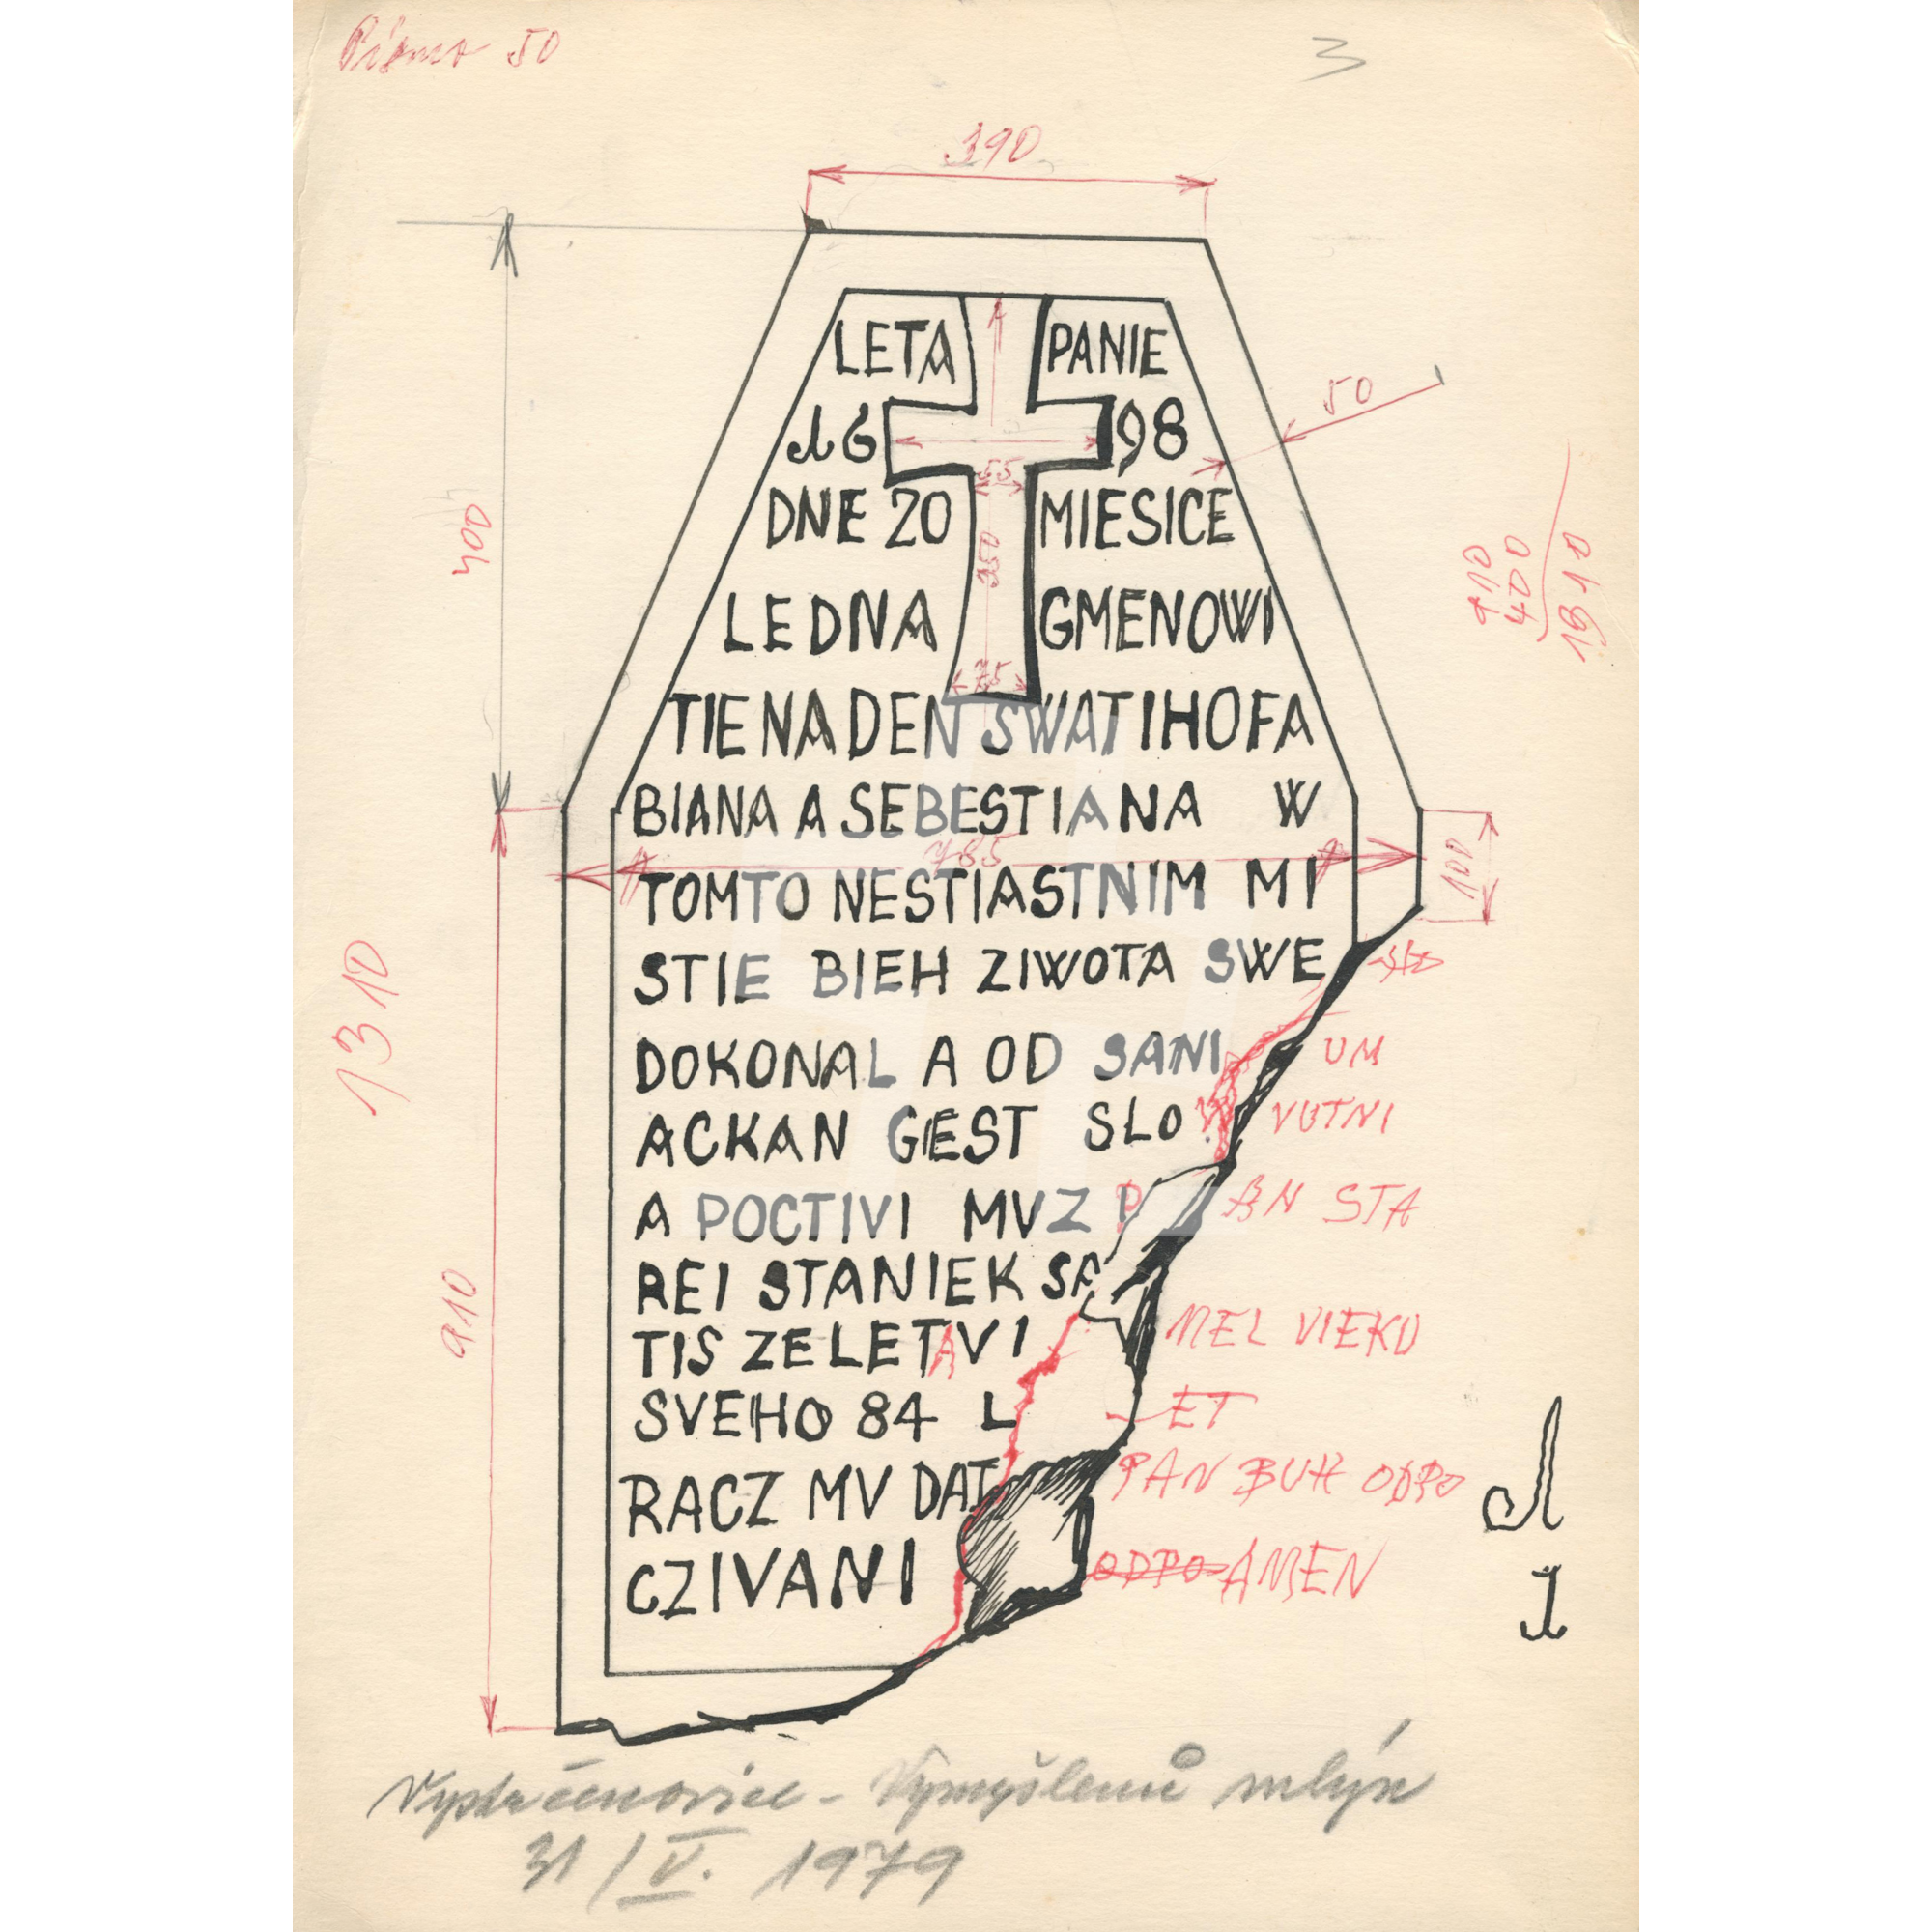 Písmo 50
3
390
LETA PANIE
16 98
50
DNE 20 MIESICE
55
400
350
910
400
1310
LEDNA GMENOWI
75
TIE NA DEN SWATIHO FA
BIANA A SEBESTIANA W
785
100
TOMTO NESTIASTNIM MI
STIE BIEH ZIWOTA SWE
1310
DOKONAL A OD SANI UM
ACKAN GEST SLOW VUTNI
A POCTIVI MVZ P AN STA
REI STANIEK SA
910
TIS ZE LETA VI MEL VIEKU
SVEHO 84 L ET
RACZ MV DAT PAN BUH ODPO
CZIVANI ODPO AMEN
Vystrčenovice - Vymyšlenů mlýn
31/V. 1979